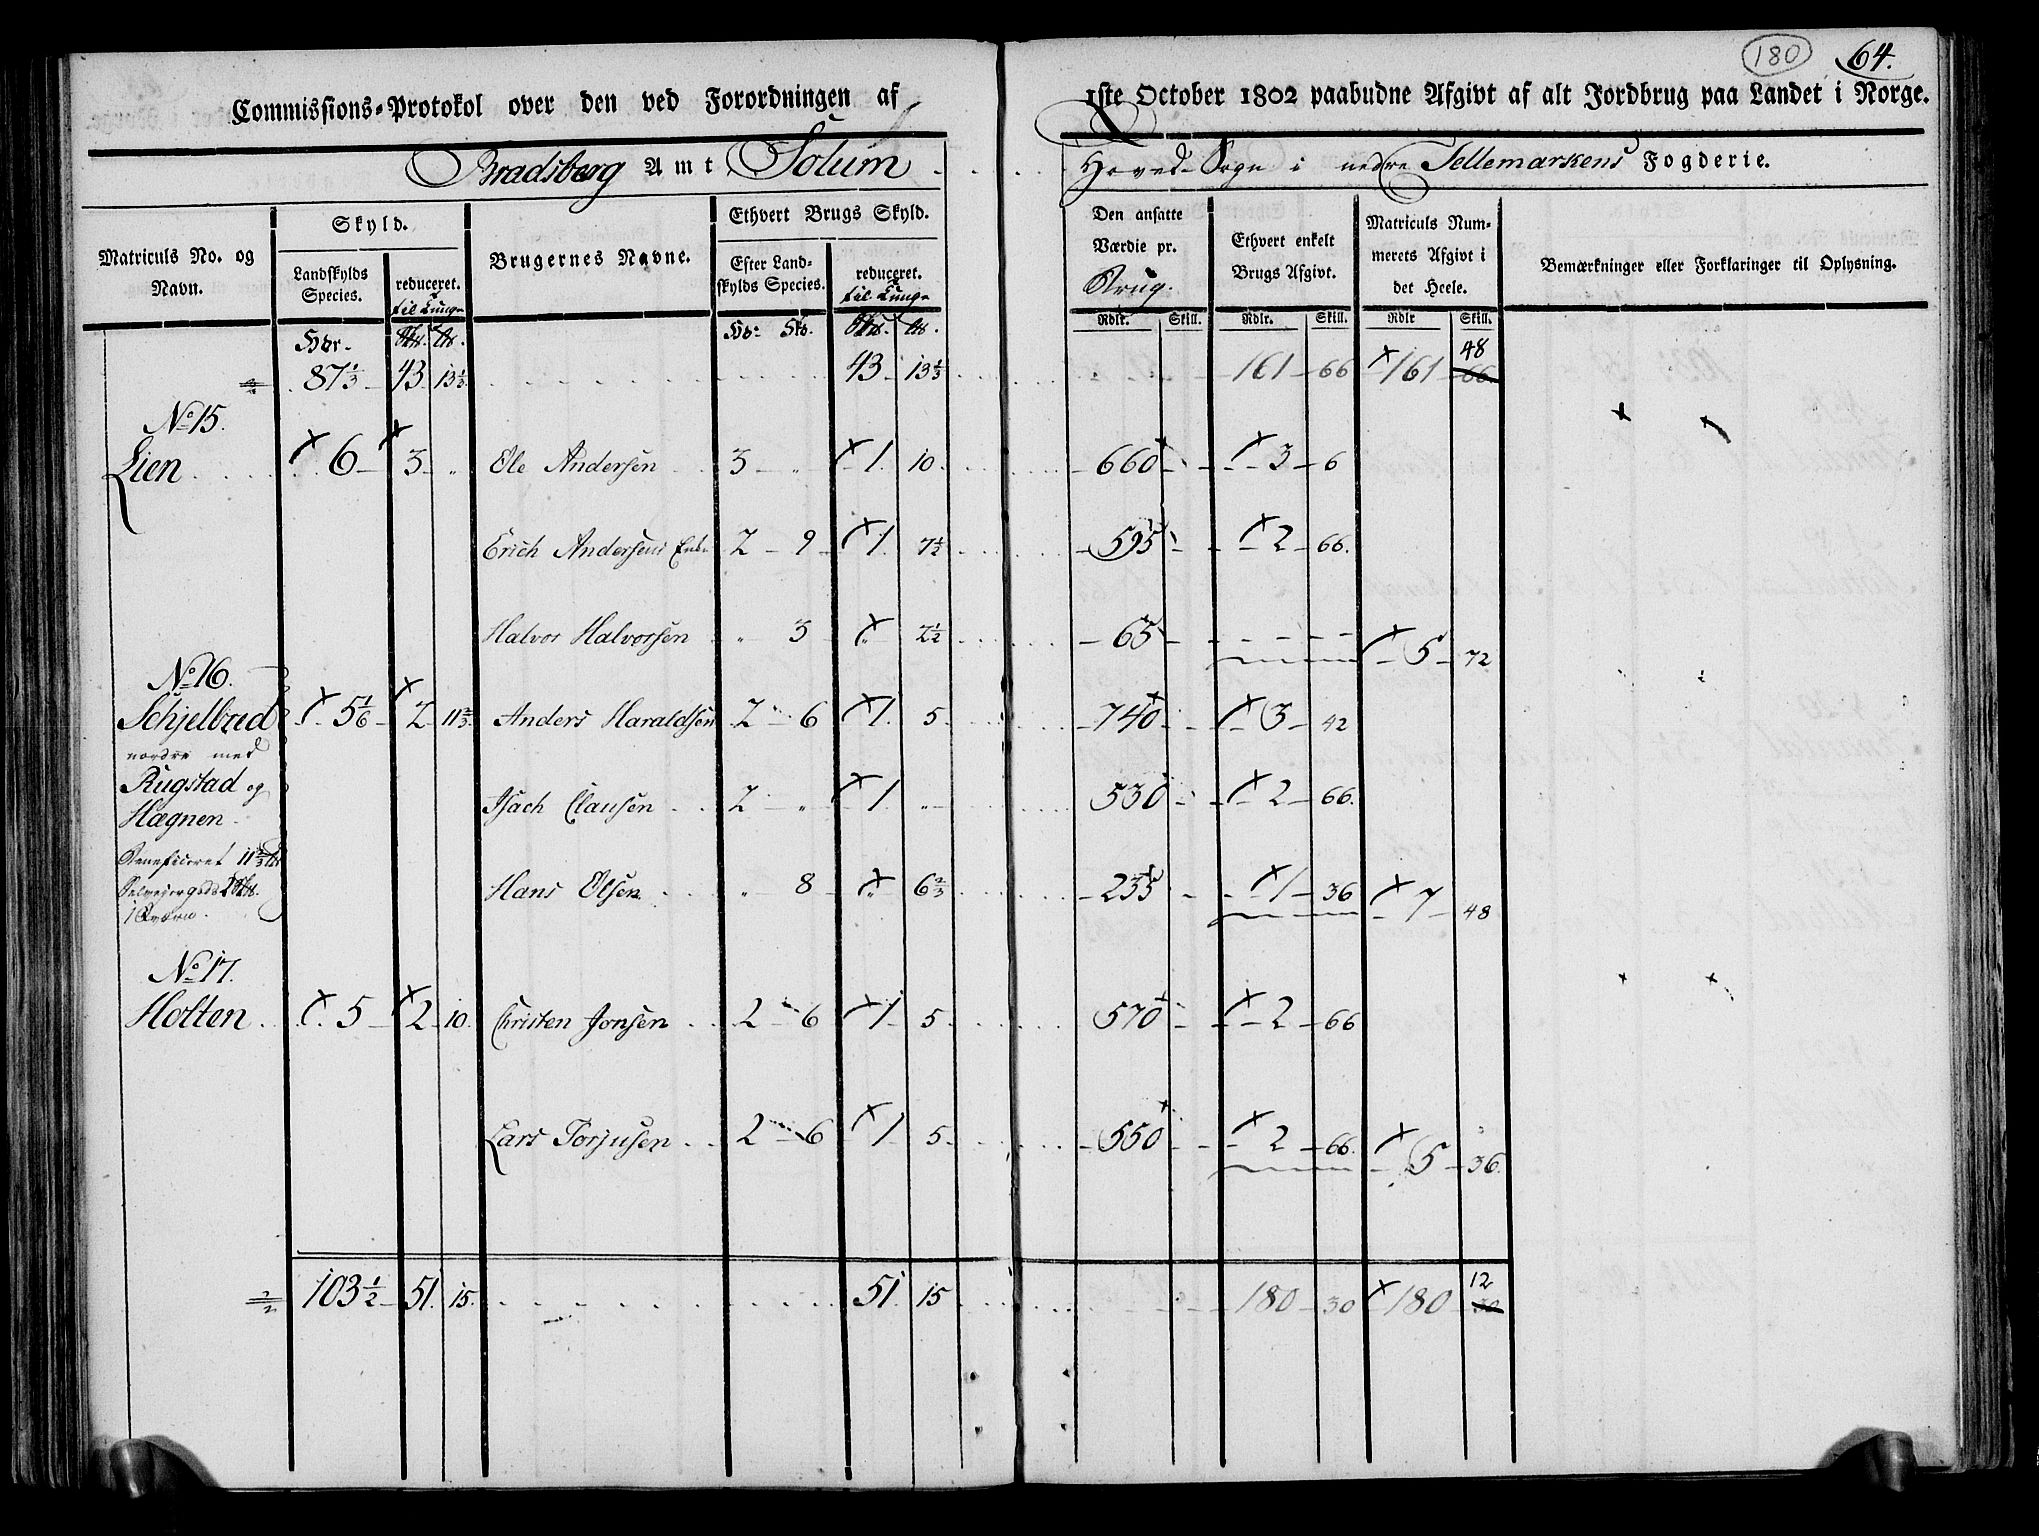 180 64.
Commissions-Protokol over den ved Forordningen af 1ste October 1802 paabudne Afgivt af alt Jordbrug paa Landet i Norge.
Bradsberg Amt Solum Hoved-Sogn i nedre Tellemarkens Fogderie.
Matriculs No. og Navn.
Skyld.
Landskylds Species.
reduceret.
til Tunge
Brugernes Navne.
Ethvert Brugs Skyld.
Efter Landskylds Species.
reduceret.
til Tunge
Den ansatte Værdie pr. Brug.
Ethvert enkelt Brugs Afgivt.
Matriculs Nummerets Afgivt i det Heele.
Bemærkninger eller Forklaringer til Oplysning.
Rdlr. Skill. Rdlr. Skill. Rdlr Skill.
87 1/3 43 13 1/3 43 13 1/3 161 66 161 48 66
No 15.
Lien 6 3 " Ole Andersen 3 " 1 10 660 3 6
Erich Andersens 2 9 1 7 1/2 595 2 66.
Halvor Halvorsen " 3 " 2 1/2 65 5 72
No 16.
Schjelbred 5 5/6 2 11 2/3 Anders Haraldsen 2 6 1 5 740 3 42
nordre med
Rugstad og
Isach Clausen 2 " 1 " 530 2 66.
Hægnen
Beneficeret 11 2/3
Hans Olsen " 8 " 6 2/3 235 1 36 7 48
No 17.
Holten 5 2 10. Christen Jonsen 2 6 1 5 570 2 66
Lars Torjusen 2 6 1 5 550 2 66. 5 36.
103 1/2 51. 15. 51. 15 180 30 180 12 30